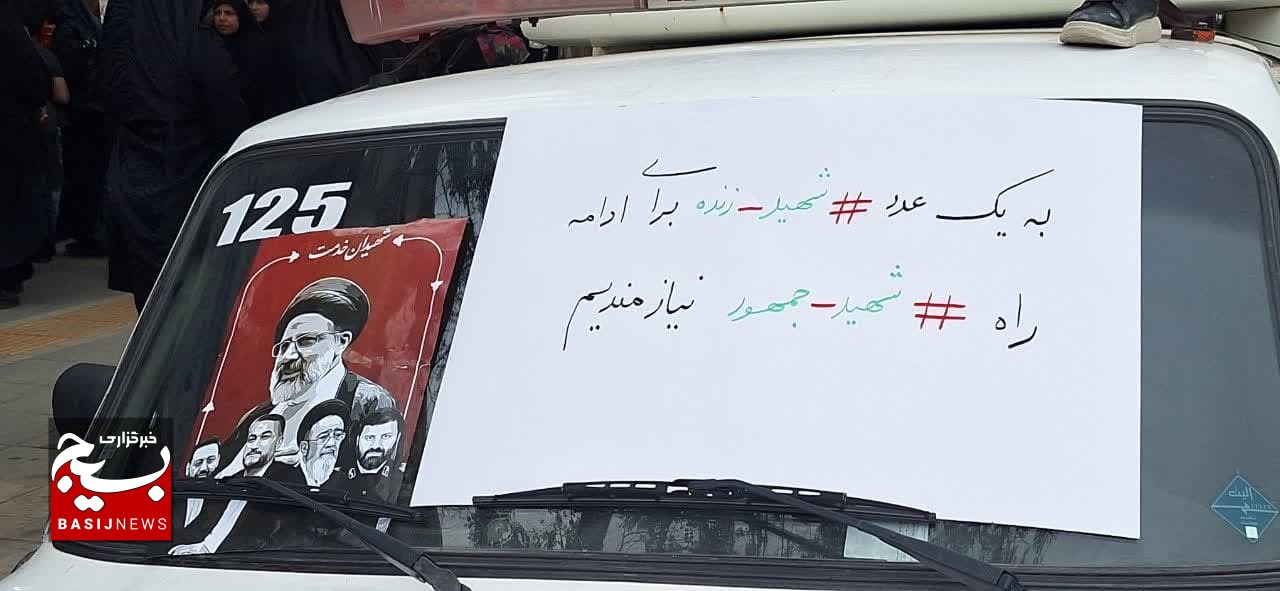 125
شهیدان خدمت
به یک عدد #شهید_زنده برای ادامه
راه #شهید_جمهور نیازمندیم
خبرگزاری
بسیج
BASIJNEWS